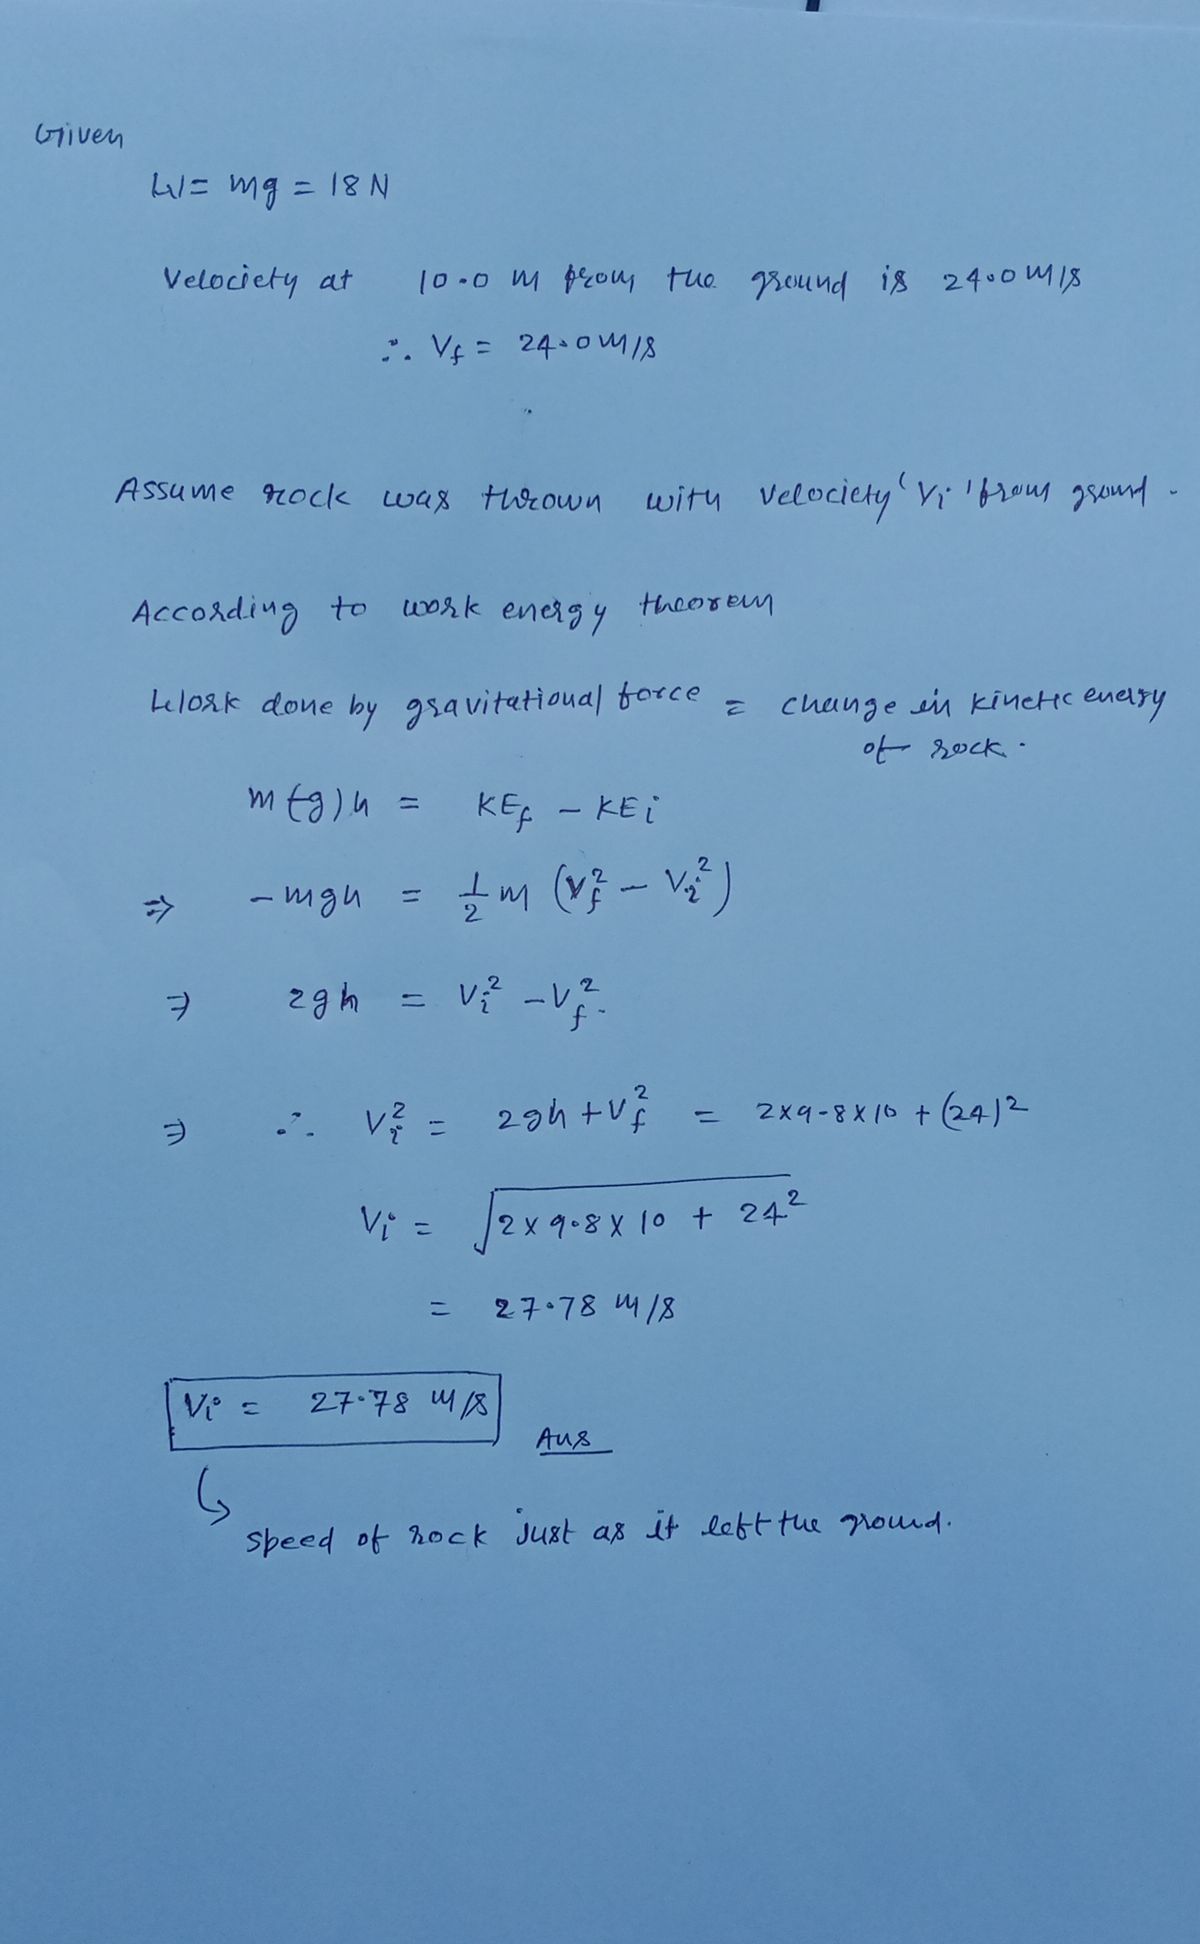 Given
W = mg = 18 N
Velociety at 10.0 m from the ground is 24.0 m/s
∴ Vf = 24.0 m/s
Assume rock was thrown with velociety 'Vi' from ground.
According to work energy theorem
Work done by gravitational force = change in kinetic energy
of rock.
m(-g)h = KEf - KEi
⇒ -mgh = 1/2 m (Vf² - Vi²)
⇒ 2gh = Vi² - Vf².
⇒ ∴ Vi² = 2gh + Vf² = 2×9.8×10 + (24)²
Vi = √(2×9.8×10 + 24²)
= 27.78 m/s
Vi = 27.78 m/s
Ans
speed of rock just as it left the ground.